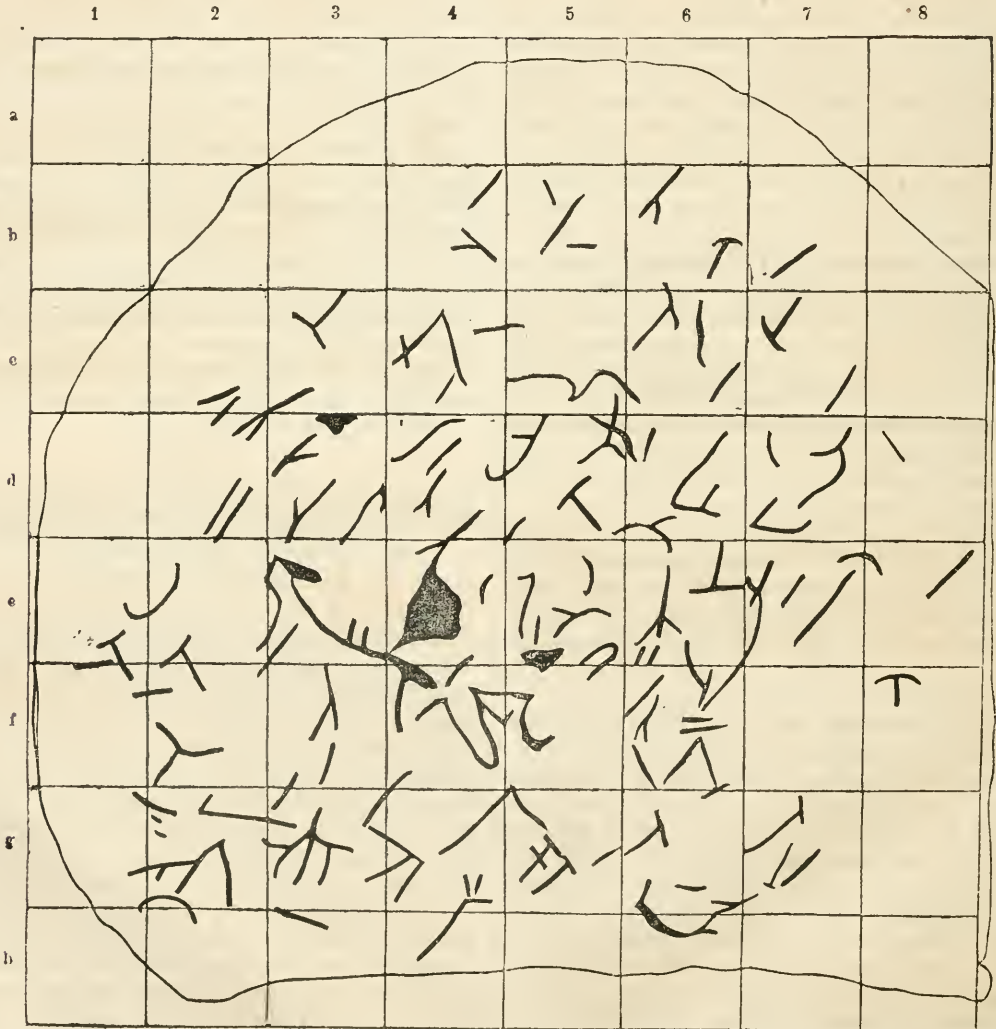 1 2 3 4 5 6 7 8
a
b
c
d
e
f
g
h